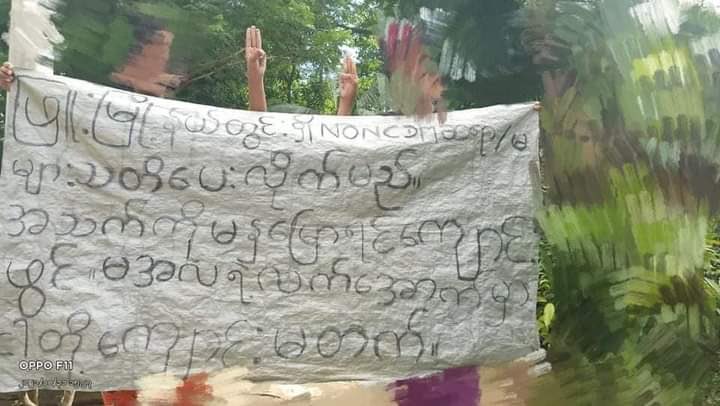 ဖြူးမြို့နယ်တွင်းရှိ NONCDM ဆရာ/မ
များသတိပေးလိုက်မည်။
အသက်ကိုမနှမြောရင်ကျောင်း
ဖွင့်။ မအလရဲ့လက်အောက်မှာ
ငါတို့ကျောင်းမတက်။
OPPO F11